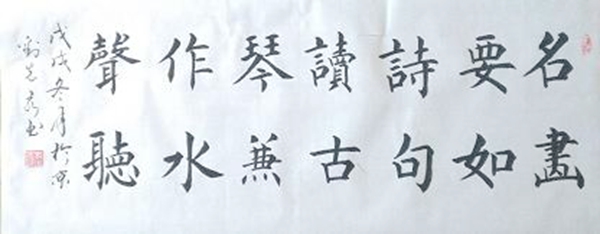 名畫
要如
詩句
讀古
琴兼
作水
聲聽
戊戌冬月於京
劉书